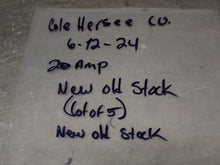 Cole Hersee CO.
6-12-24
20 Amp
New Old Stock
(Lot of 5)
New Old Stock